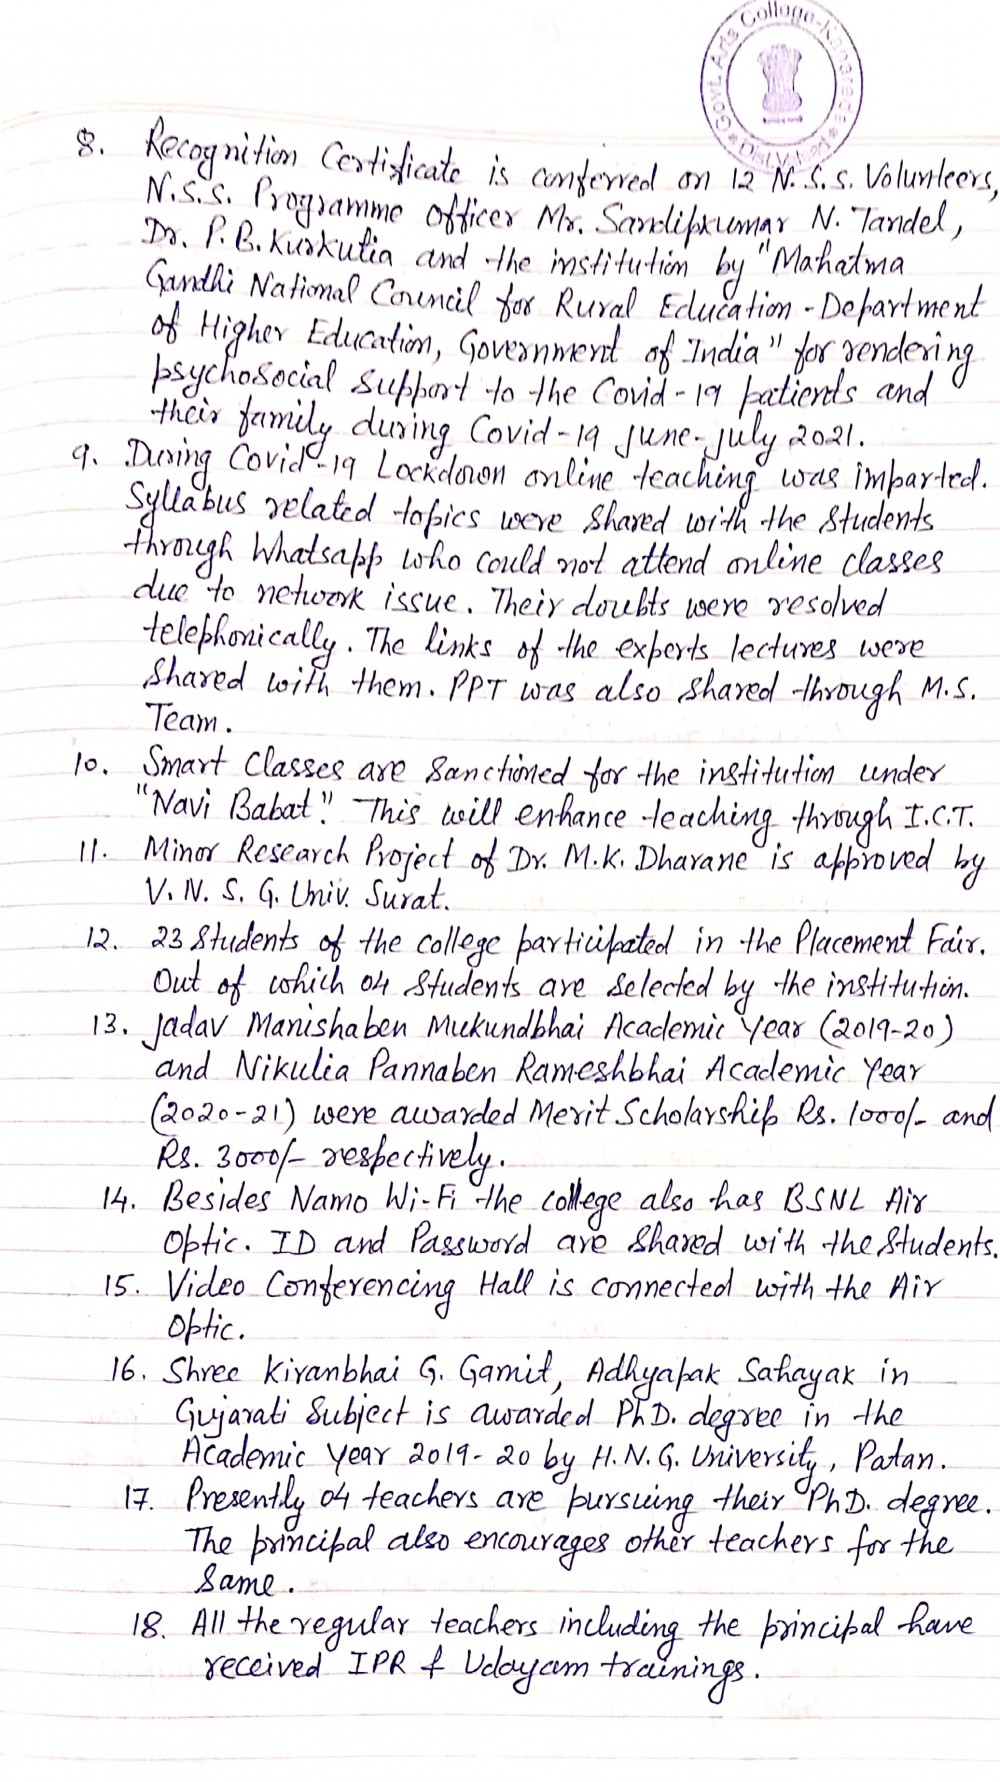 Govt. Arts College-Kaparada
Dist. Valsad
8. Recognition Certificate is conferred on 12 N.S.S. Volunteers,
N.S.S. Programme officer Mr. Sandipkumar N. Tandel,
Dr. P.B. Kurkutia and the institution by "Mahatma
Gandhi National Council for Rural Education - Department
of Higher Education, Government of India" for rendering
psychosocial support to the Covid-19 patients and
their family during Covid-19 June-July 2021.
9. During Covid-19 Lockdown online teaching was imparted.
Syllabus related topics were shared with the students
through Whatsapp who could not attend online classes
due to network issue. Their doubts were resolved
telephonically. The links of the experts lectures were
shared with them. PPT was also shared through M.S.
Team.
10. Smart Classes are sanctioned for the institution under
"Navi Babat". This will enhance teaching through I.C.T.
11. Minor Research Project of Dr. M.K. Dharane is approved by
V.N.S.G. Univ. Surat.
12. 23 Students of the college participated in the Placement Fair.
Out of which 04 Students are selected by the institution.
13. Jadav Manishaben Mukundbhai Academic Year (2019-20)
and Nikulia Pannaben Rameshbhai Academic Year
(2020-21) were awarded Merit Scholarship Rs. 1000/- and
Rs. 3000/- respectively.
14. Besides Namo Wi-Fi the college also has BSNL Air
Optic. ID and Password are shared with the students.
15. Video Conferencing Hall is connected with the Air
Optic.
16. Shree Kiranbhai G. Gamit, Adhyapak Sahayak in
Gujarati Subject is awarded PhD. degree in the
Academic Year 2019-20 by H.N.G. University, Patan.
17. Presently 04 teachers are pursuing their PhD. degree.
The principal also encourages other teachers for the
same.
18. All the regular teachers including the principal have
received IPR & Udayam trainings.